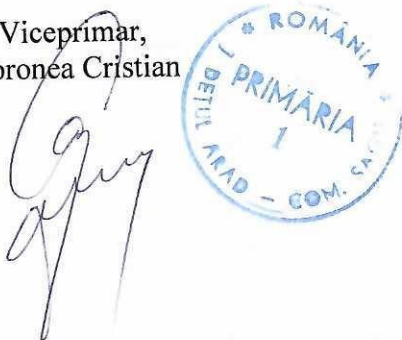 Viceprimar,
oronea Cristian
* ROMÂNIA *
DEȚUL ARAD - COM.
PRIMĂRIA
1